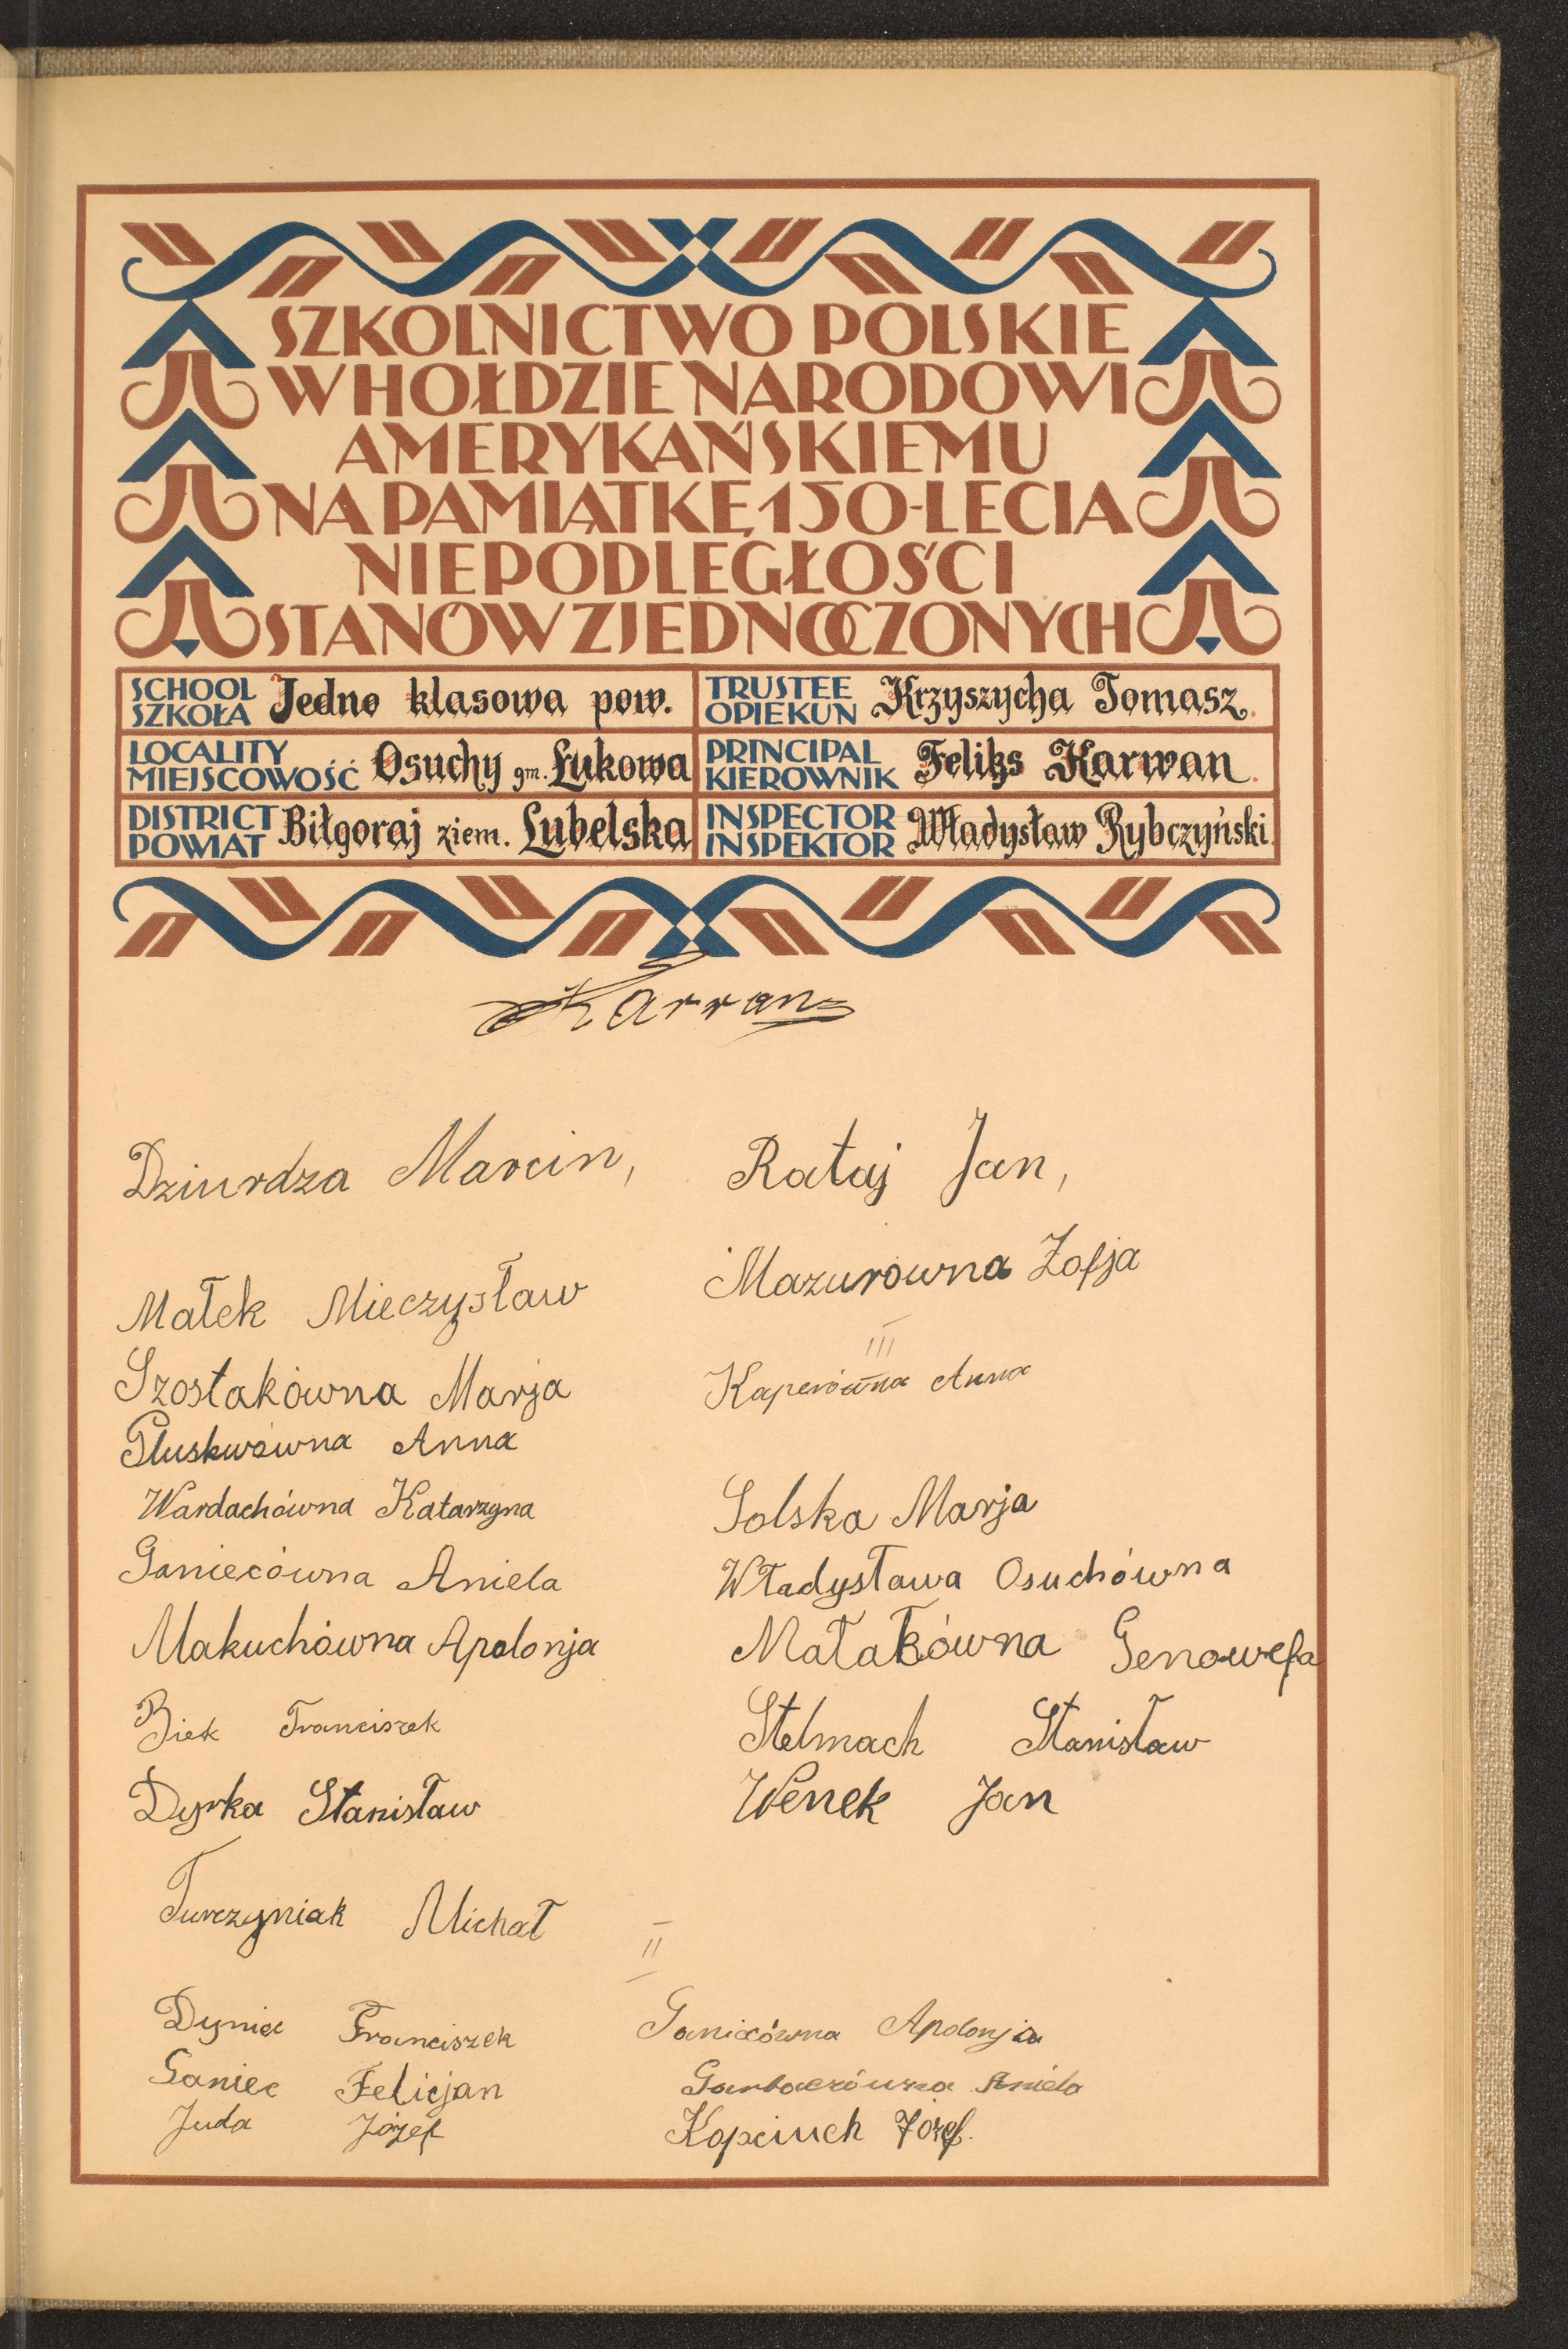 SZKOLNICTWO POLSKIE
W HOŁDZIE NARODOWI
AMERYKAŃSKIEMU
NA PAMIĄTKĘ 150-LECIA
NIEPODLEGŁOŚCI
STANÓW ZJEDNOCZONYCH
SCHOOL SZKOŁA Jedno klasowa pow.
TRUSTEE OPIEKUN Krzyszycha Tomasz.
LOCALITY MIEJSCOWOŚĆ Osuchy gm. Łukowa
PRINCIPAL KIEROWNIK Feliks Karwan.
DISTRICT POWIAT Biłgoraj ziem. Lubelska
INSPECTOR INSPEKTOR Władysław Rybczyński
FKarwan
Dziurdza Marcin, Rataj Jan,
Małek Mieczysław Mazurowna Zofja
III
Szostakówna Marja Kaperówna Anna
Głuskwówna Anna
Wardachówna Katarzyna Solska Marja
Ganiecówna Aniela Władysława Osuchówna
Makuchówna Apolonja Małakówna Genowefa
Biek Franciszek Stelmach Stanisław
Dyrka Stanisław Wenek Jan
Turczyniak Michał
II
Dyniec Franciszek Ganiecówna Apolonja
Ganiec Felicjan Garbaczówna Aniela
Juda Józef Kapciuch Józef.